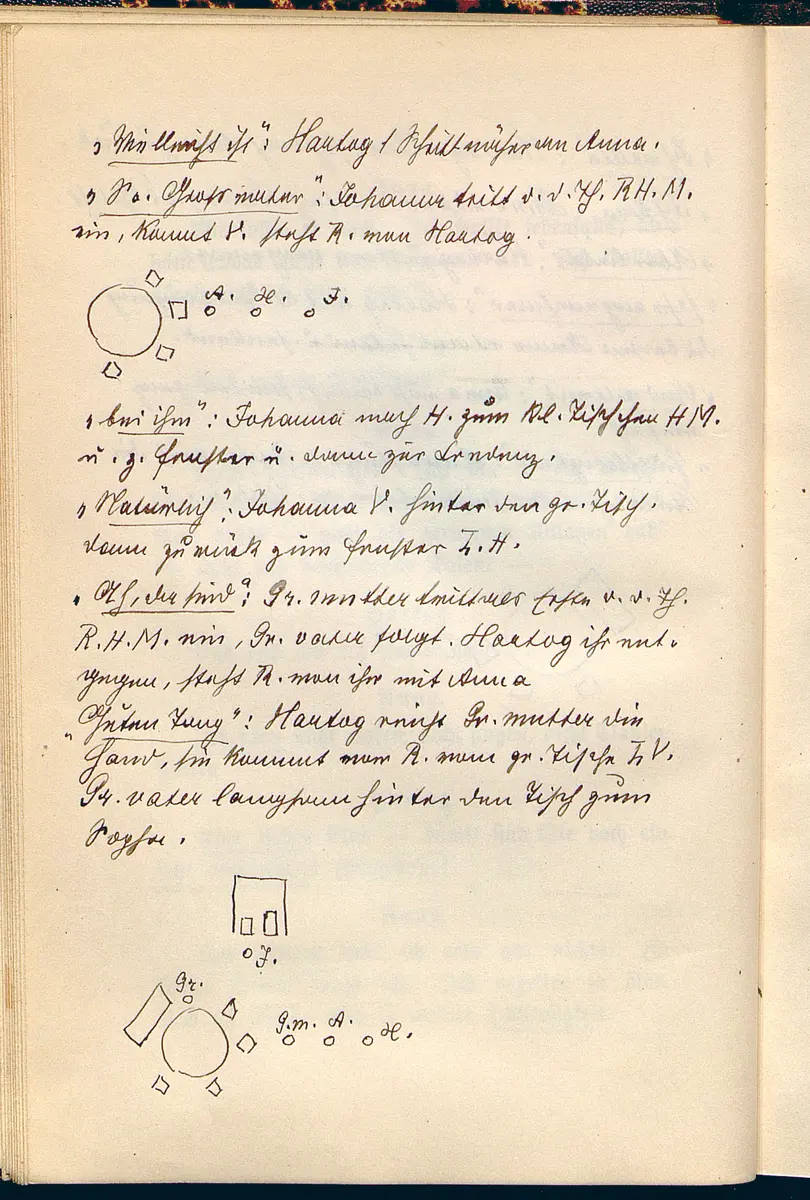 „Vielleicht ist": Hartog 1 Schritt näher an Anna.
„So. Grossmutter": Johanna tritt d. d. Th. R.H.M.
ein, kommt V. steht R. von Hartog.
A. H. J.
„bei ihm": Johanna nach H. zum kl. Tischchen H M.
u. z. Fenster u. dann zur Credenz.
„Natürlich": Johanna V. hinter den gr. Tisch.
dann zurück zum Fenster L. H.
„Ah, da sind": Gr. mutter tritt als Erste d. d. Th.
R.H.M. ein, Gr. vater folgt. Hartog ihr ent-
gegen, steht R. von ihr mit Anna
„Guten Tag": Hartog reicht Gr. mutter die
Hand, sie kommt vor R. vom gr. Tische L V.
Gr. vater langsam hinter den Tisch zum
Sopha.
J.
Gr.
G.m. A. H.